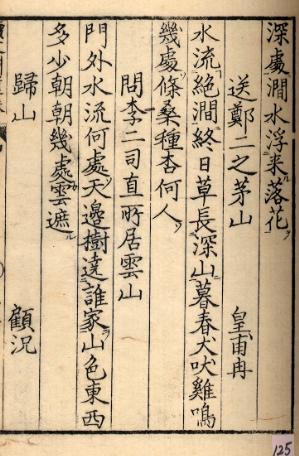 深處澗水浮来落花
送鄭二之茅山
皇甫冉
水流絶澗終日草長深山暮春犬吠雞鳴
幾處條桑種杏何人
問李二司直所居雲山
門外水流何處天邊樹遶誰家山色東西
多少朝朝幾處雲遮
歸山
顧况
125